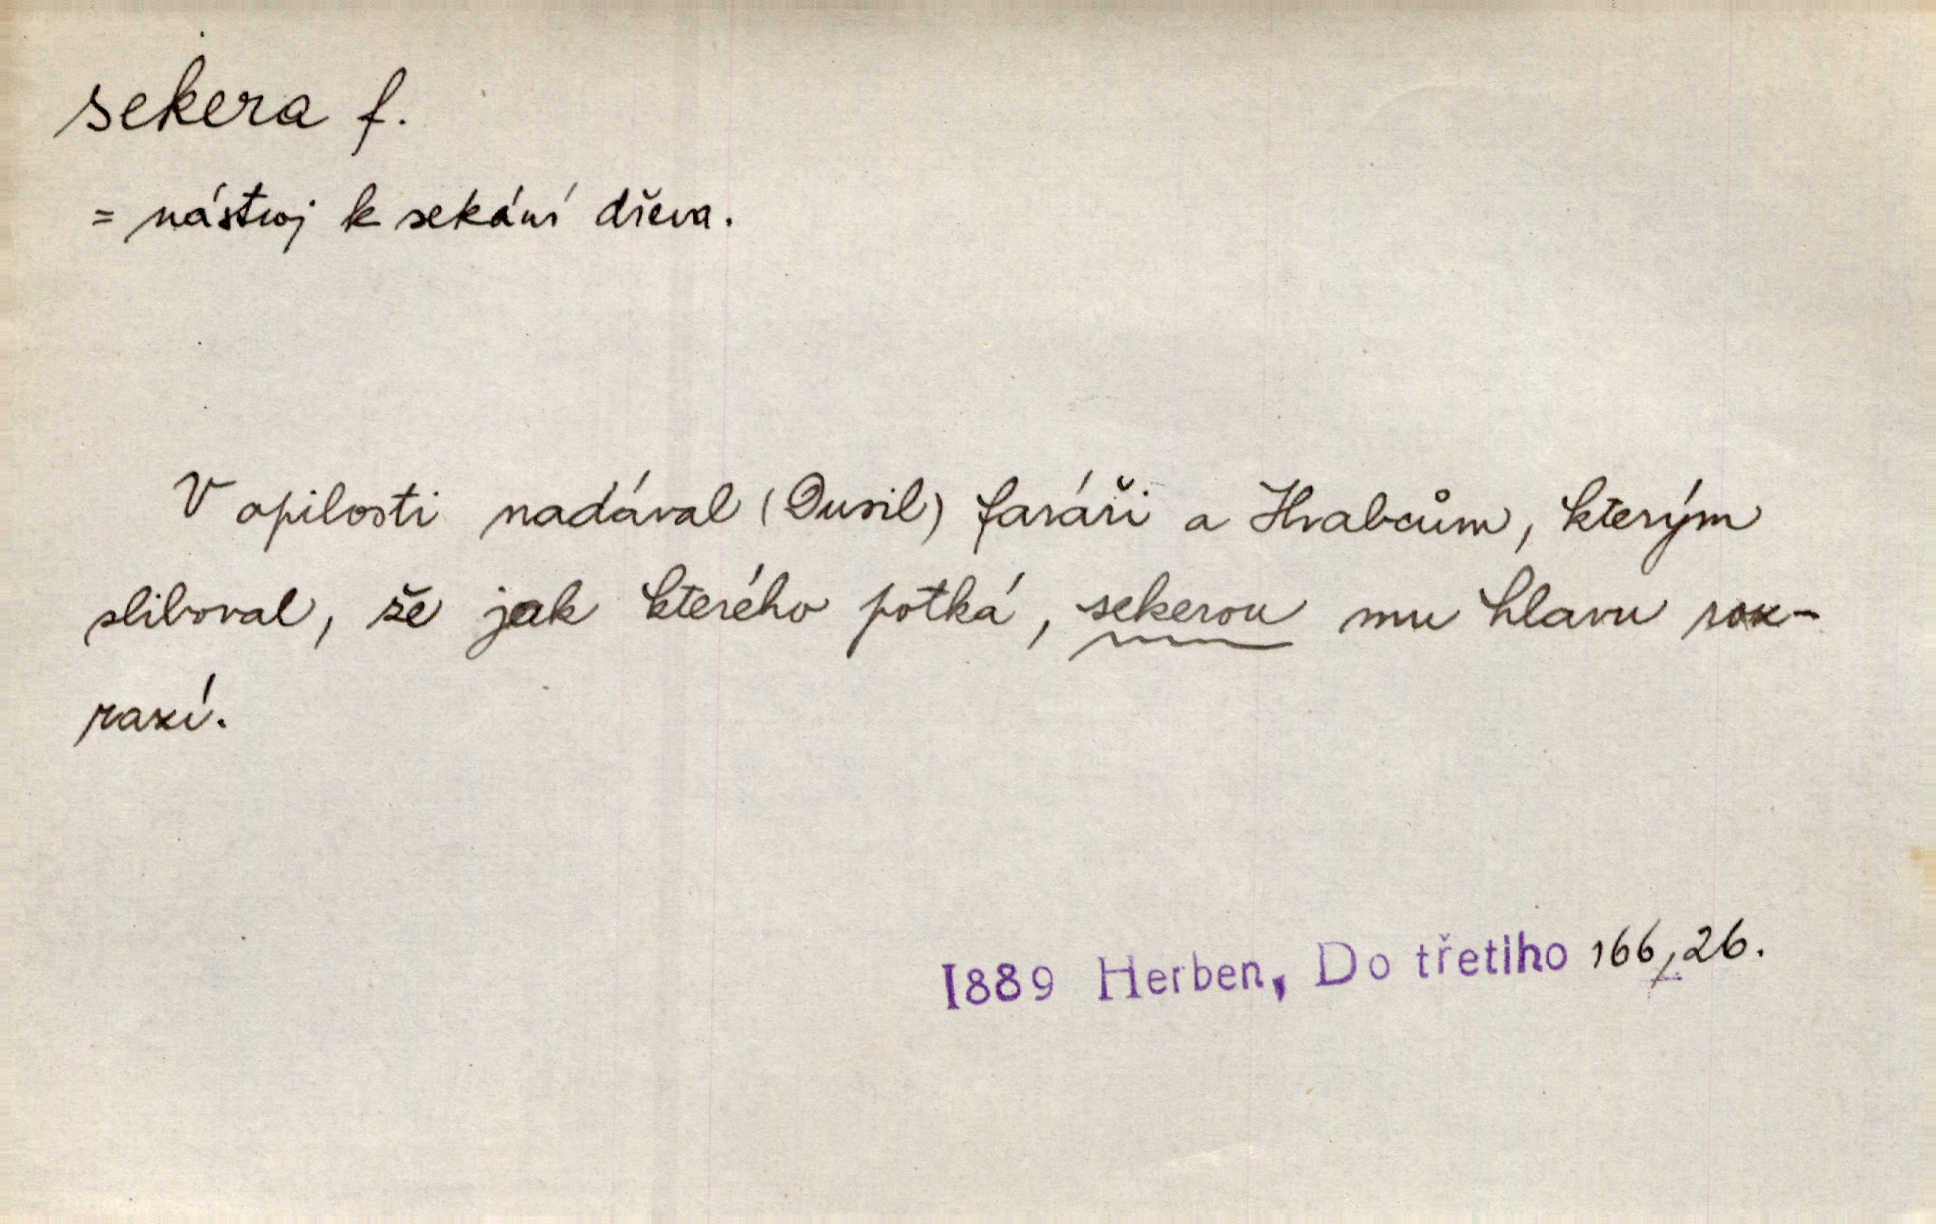 sekera f.
= nástroj k sekání dřeva.
V opilosti nadával (Dusil) faráři a Hrabcům, kterým
sliboval, že jak kterého potká, sekerou mu hlavu roz-
razí.
1889 Herben, Do třetiho 166,26.